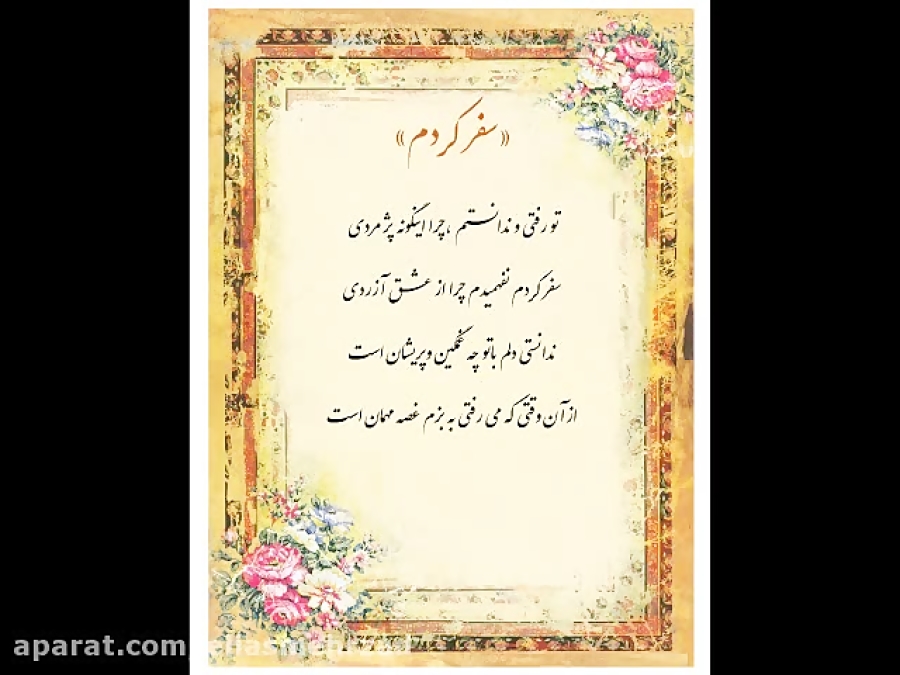 «سفر کردم»
تو رفتی و ندانستم ،چرا اینگونه پژمردی
سفر کردم نفهمیدم چرا از عشق آزردی
ندانستی دلم باتو چه غمگین و پریشان است
از آن وقتی که می رفتی به بزم غصه مهمان است
aparat.com/eliasmehrzad